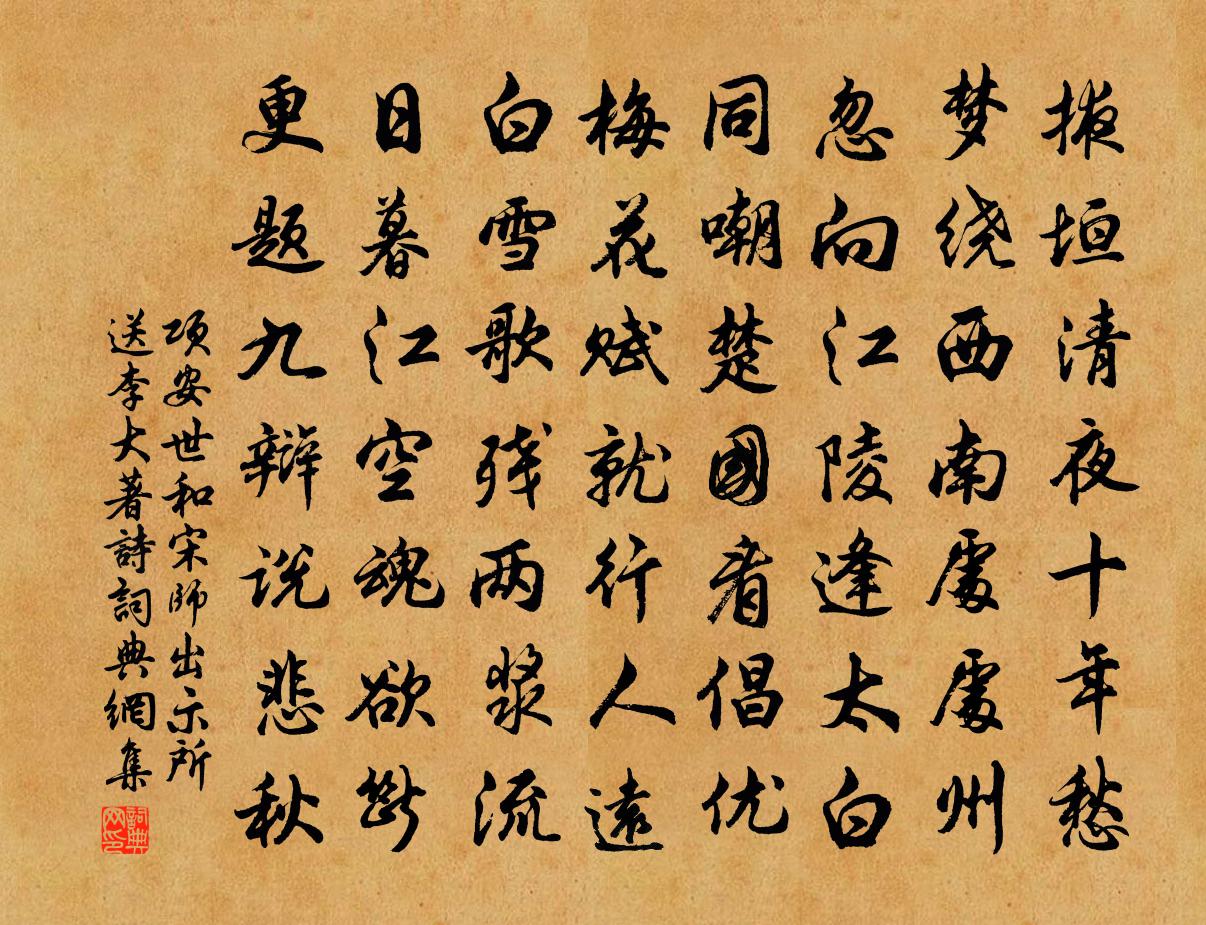 掖垣清夜十年愁
梦绕西南处处州
忽向江陵逢太白
同嘲楚國看倡优
梅花赋就行人遠
白雪歌残两桨流
日暮江空魂欲断
更题九辩说悲秋
项安世和宋师出示所
送李大著詩詞典網集
詞典
网印